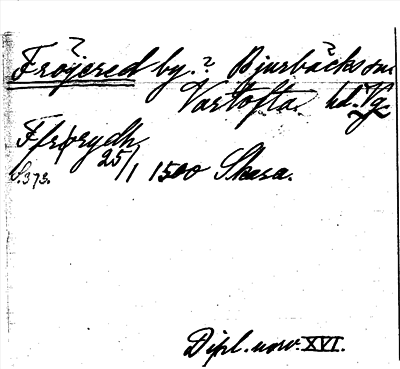 ?
Fröjered by.? Bjurbäcks sn.
Vartofta hd. Vg.
Ffrørydh
S.373. 25/1 1500 Skara.
Dipl. norv. XVI.